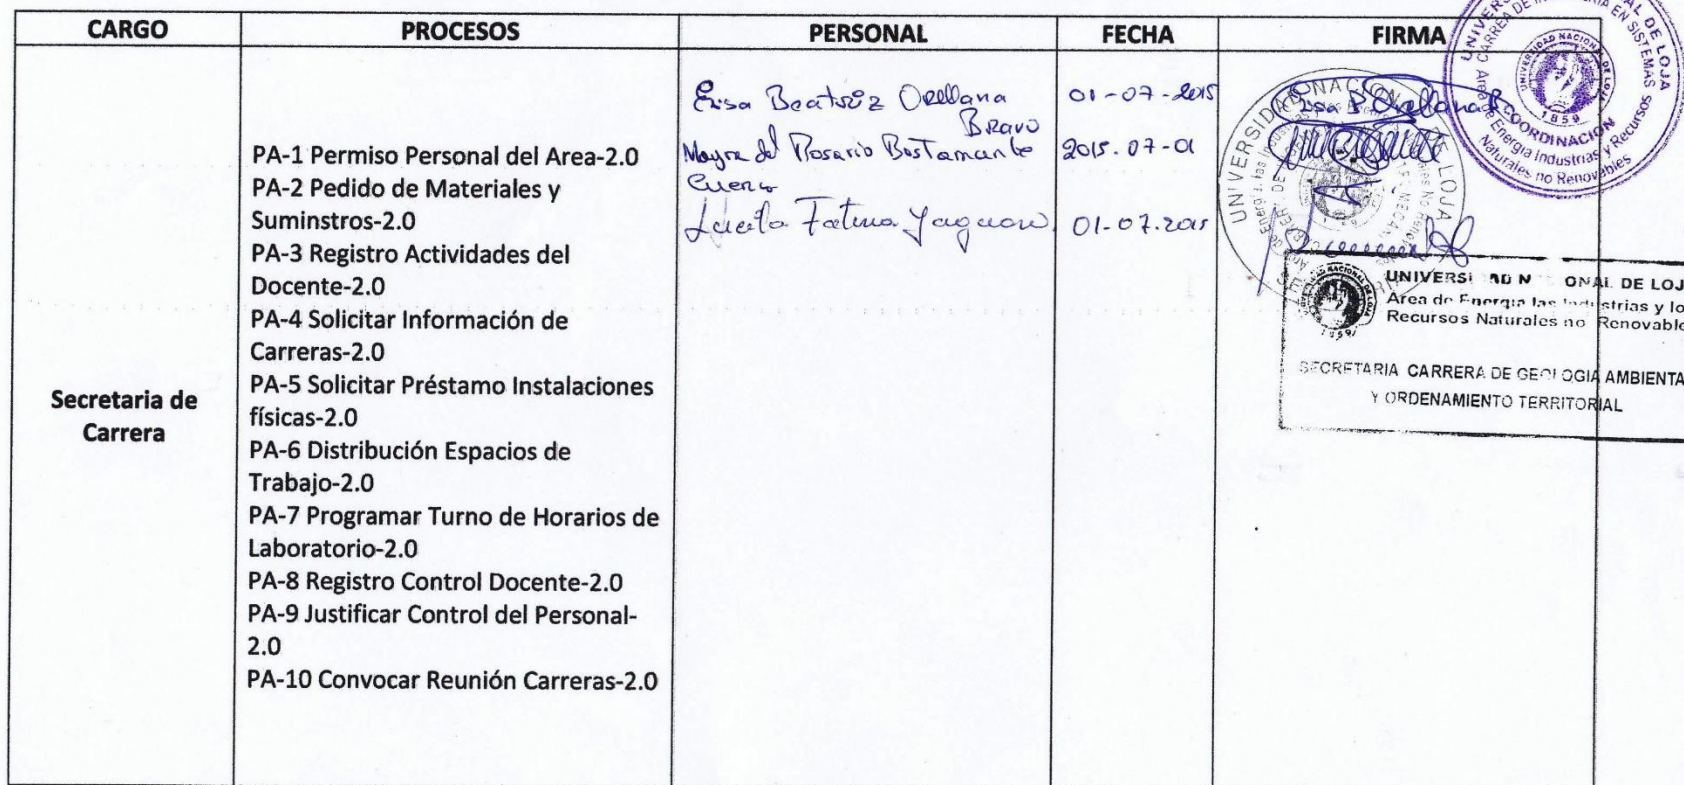 CARGO PROCESOS PERSONAL FECHA FIRMA
Secretaria de
Carrera
PA-1 Permiso Personal del Area-2.0
PA-2 Pedido de Materiales y
Suminstros-2.0
PA-3 Registro Actividades del
Docente-2.0
PA-4 Solicitar Información de
Carreras-2.0
PA-5 Solicitar Préstamo Instalaciones
físicas-2.0
PA-6 Distribución Espacios de
Trabajo-2.0
PA-7 Programar Turno de Horarios de
Laboratorio-2.0
PA-8 Registro Control Docente-2.0
PA-9 Justificar Control del Personal-
2.0
PA-10 Convocar Reunión Carreras-2.0
Beatriz Orellana
Bravo
01-07-2015
Mayra del Rosario Bustamante
2015.07-01
Fatima
01.07.2015
UNIVERSIDAD NACIONAL DE LOJA
COORDINACIÓN
Area de Energía Industrias y Recursos
Naturales no Renovables
1859
UNIVERSI AD N ONAL DE LOJ
Area de Energia las Industrias y lo
Recursos Naturales no Renovable
1859
SECRETARIA CARRERA DE GEOLOGIA AMBIENTA
Y ORDENAMIENTO TERRITORIAL